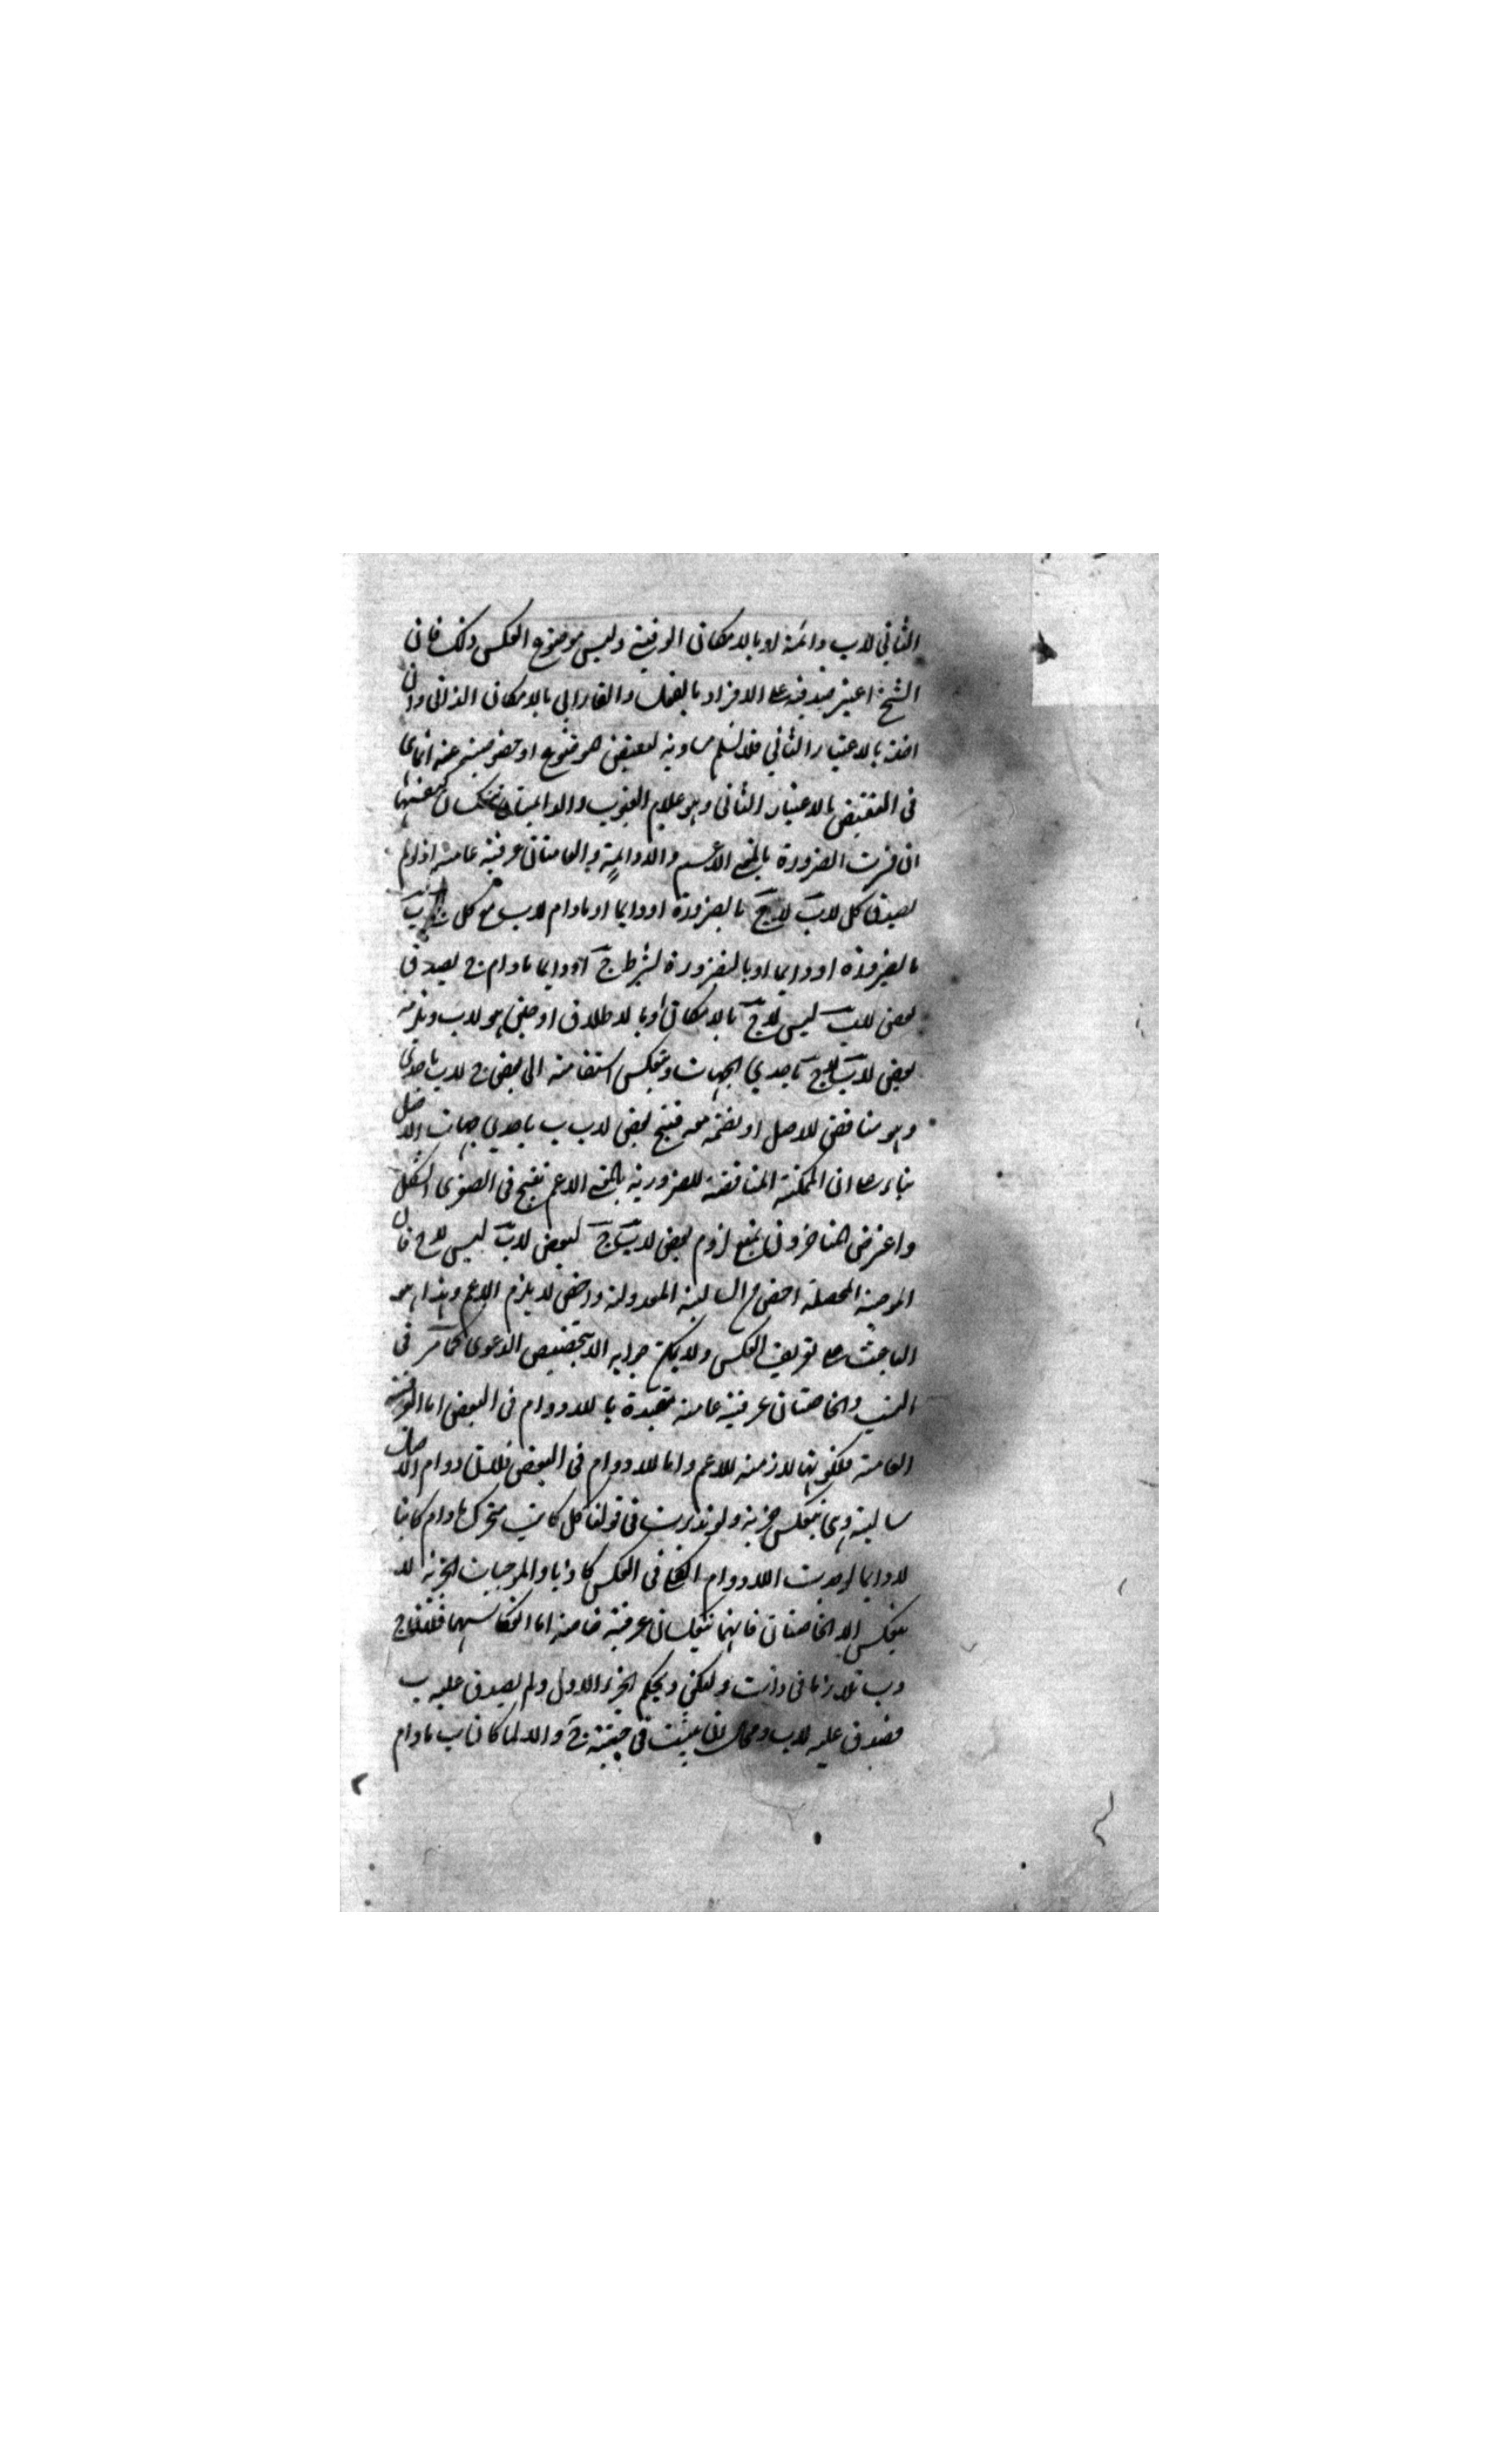 الثاني لاب دائمة لا بالامكان الوقتية وليس موضوع العكس ذلك فان
الشيخ اعتبر صدقه على الافراد بالفعل والفارابي بالامكان الذاتي وان
اخذ بالاعتبار الثاني فلا نسلم مساوية نقيض
في النقيض بالاعتبار الثاني وهو علام الغيوب والدائمتان تنعكسان كنفسهما
ان فسرت الضرورة بالمعنى الاعم والا دائمة والعامتان عرفية عامة اذ لو لم
يصدق كل لاب لاج بالضرورة او دائما او مادام لاب مع كل ج ب
بالضرورة او دائما او بالضرورة بشرط ج او دائما مادام ج لصدق
بعض لاب ليس لاج بالامكان او بالاطلاق او حين هو لاب ويلزمه
بعض لاب ج باحدي الجهات وينعكس استقامة الى بعض ج لاب باحدي
وهو مناقض للاصل او نضمه معه فينتج بعض لاب ب باحدي جهات الاصل
بناء على ان الممكنة المناقضة للضرورية بالمعنى الاعم تنتج في الصغرى الشكل
واعترض المتاخرون بمنع لزوم بعض لاب ج لبعض لاب ليس لاج فان
الموجبة المحصلة اخص من السالبة المعدولة والاخص لا يلزم الاعم وهذا هو
الباعث على تعريف العكس ولا يمكن جوابه الا بتخصيص الدعوى كما مر في
النسب والخاصتان عرفية عامة مقيدة باللادوام في البعض اما العرفية
العامة فلكونها لازمة للاعم واما اللادوام في البعض فلان لادوام الاصل
سالبة وهي تنعكس جزئية ولو تدبرت في قولنا كل كاتب متحرك مادام كاتبا
لا دائما لوجدت اللادوام الكلي في العكس كاذبا والموجبات الجزئية لا
تنعكس الا الخاصتان فانهما تنعكسان عرفية خاصة اما انعكاسهما فلان ج
وب تلازما في ذات ولكن بحكم الجزء الاول ولم يصدق عليه ب
فصدق عليه لاب ومحال ان يثبت في حينية ج والا لما كان ب مادام